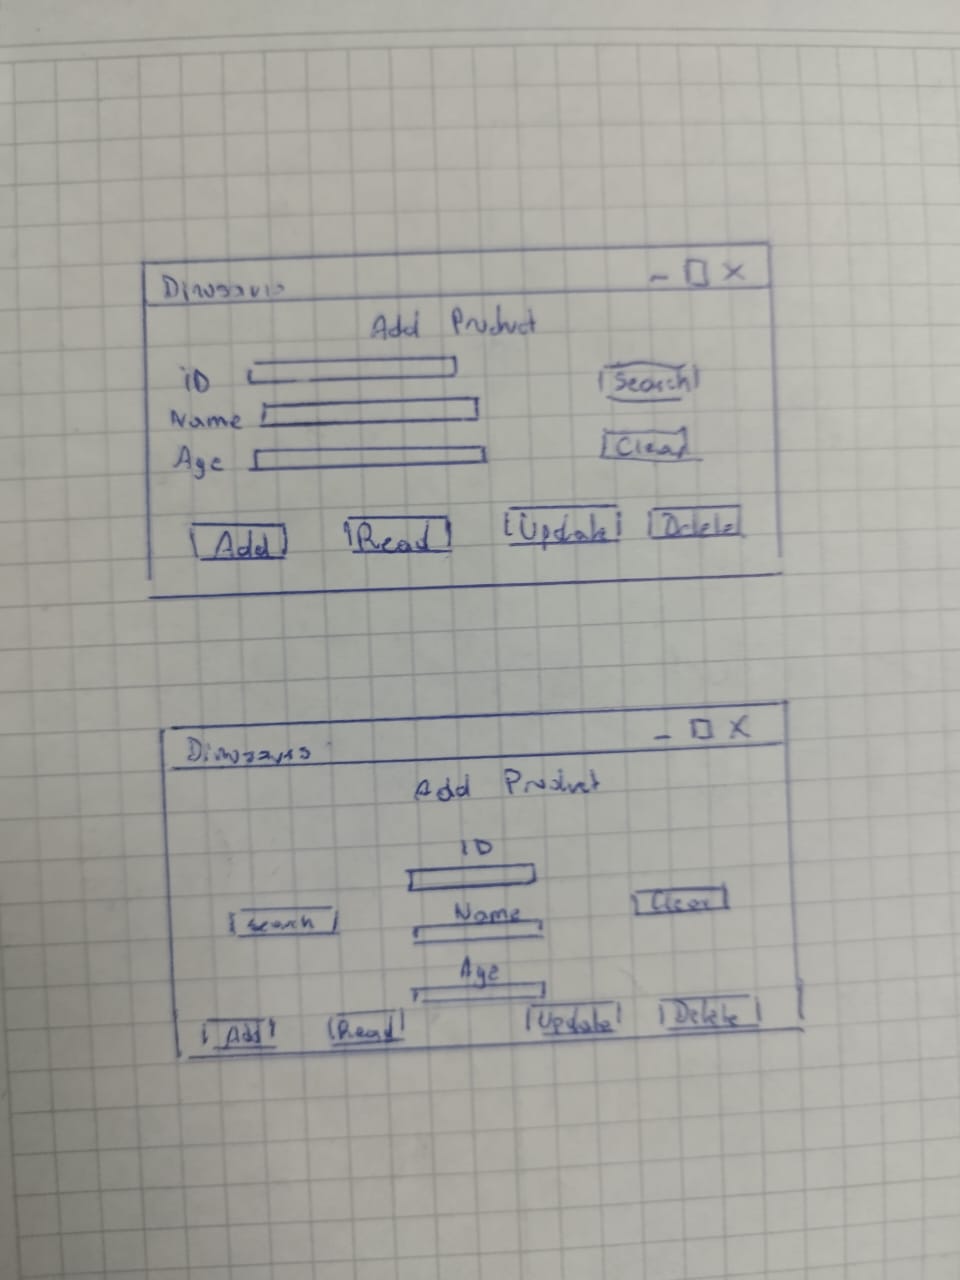 Dinosaurio - □ X
Add Product
iD Search
Name
Clear
Age
Add Read Update Delete
- □ X
Add Product
ID
Search Name Clear
Age
Add Read Update Delete